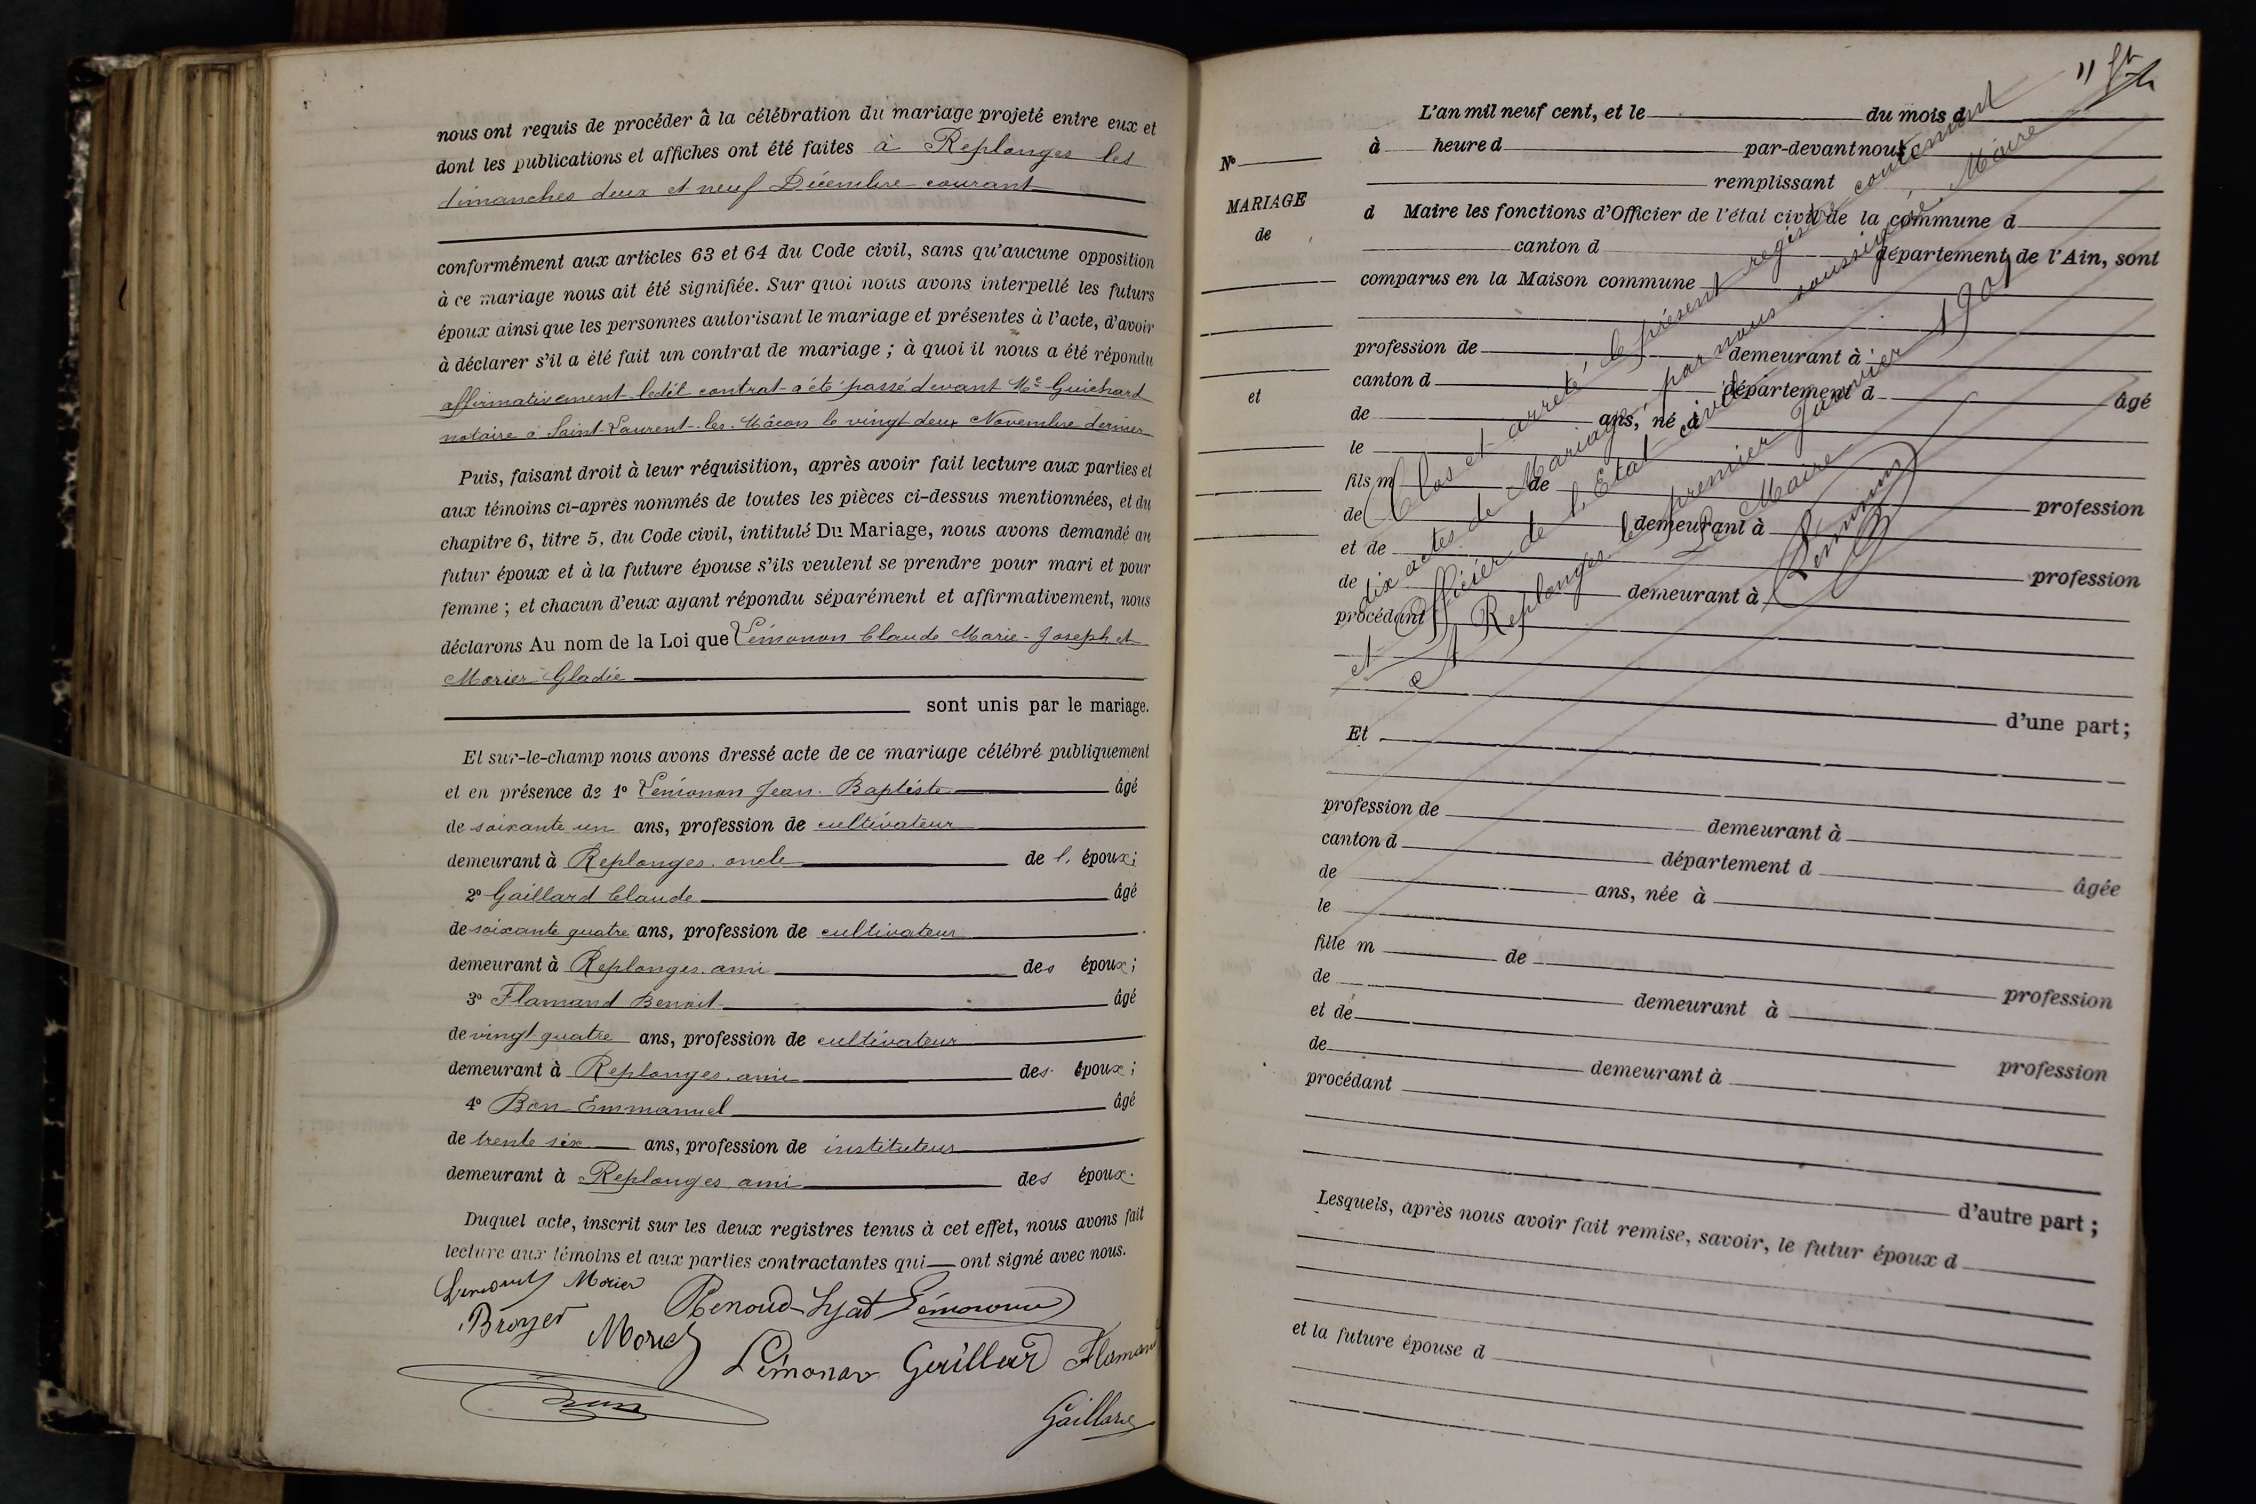 nous ont requis de procéder à la célébration du mariage projeté entre eux et
dont les publications et affiches ont été faites à Replonges les
dimanches deux et neuf Décembre courant
conformément aux articles 63 et 64 du Code civil, sans qu'aucune opposition
à ce mariage nous ait été signifiée. Sur quoi nous avons interpellé les futurs
époux ainsi que les personnes autorisant le mariage et présentes à l'acte, d'avoir
à déclarer s'il a été fait un contrat de mariage ; à quoi il nous a été répondu
affirmativement ledit contrat a été passé devant Me Guichard
notaire à Saint-Laurent-les-Mâcon le vingt deux Novembre dernier
Puis, faisant droit à leur réquisition, après avoir fait lecture aux parties et
aux témoins ci-après nommés de toutes les pièces ci-dessus mentionnées, et du
chapitre 6, titre 5, du Code civil, intitulé Du Mariage, nous avons demandé au
futur époux et à la future épouse s'ils veulent se prendre pour mari et pour
femme ; et chacun d'eux ayant répondu séparément et affirmativement, nous
déclarons Au nom de la Loi que Lémonon Claude Marie-Joseph et
Morier Gladie
sont unis par le mariage.
Et sur-le-champ nous avons dressé acte de ce mariage célébré publiquement
et en présence de 1° Lémonon Jean-Baptiste âgé
de soixante un ans, profession de cultivateur
demeurant à Replonges oncle de l' époux;
2° Gaillard Claude âgé
de soixante quatre ans, profession de cultivateur
demeurant à Replonges ami des époux;
3° Flamand Benoit âgé
de vingt quatre ans, profession de cultivateur
demeurant à Replonges ami des époux;
4° Bon Emmanuel âgé
de trente six ans, profession de instituteur
demeurant à Replonges ami des époux.
Duquel acte, inscrit sur les deux registres tenus à cet effet, nous avons fait
lecture aux témoins et aux parties contractantes qui ont signé avec nous.
Morier
Broyer Renoud-Lyat Lémonon
Lémonon Gaillard Flamand
Gaillard
L'an mil neuf cent, et le du mois d
N° à heure d par-devant nous
remplissant
MARIAGE
de
d Maire les fonctions d'Officier de l'état civil de la commune d
canton d département de l'Ain, sont
comparus en la Maison commune
profession de demeurant à
canton d département d âgé
et
de ans, né à
le
fils m de
de demeurant à profession
et de
de demeurant à profession
procédant
d'une part;
Et
profession de demeurant à
canton d département d âgée
de ans, née à
le
fille m de
de demeurant à profession
et de
de demeurant à profession
procédant
d'autre part ;
Lesquels, après nous avoir fait remise, savoir, le futur époux d
et la future épouse d
Clos et arrêté, le présent registre contenant
dix actes de Mariage, par nous soussigné, Maire
et Officier de l'Etat civil
A Replonges le premier Janvier 1901
Le Maire